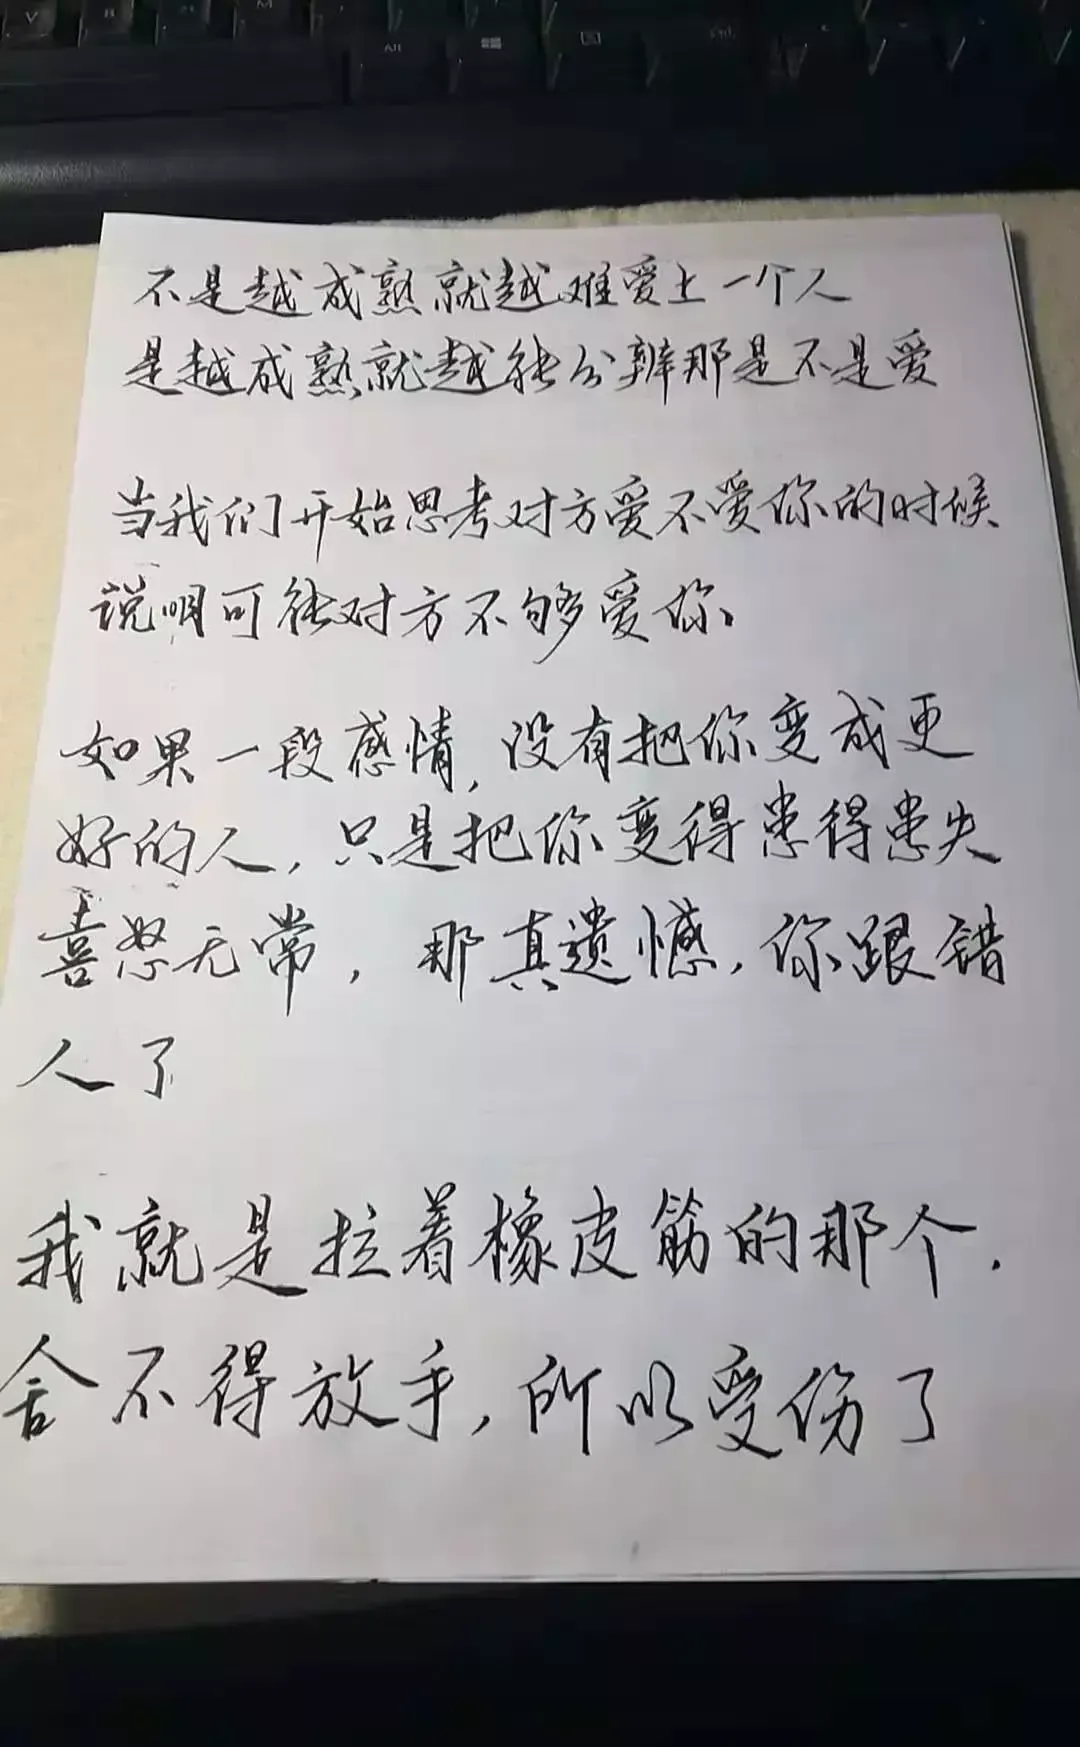 V
B
N
M
Alt
Ctrl
不是越成熟就越难爱上一个人
是越成熟就越能分辨那是不是爱
当我们开始思考对方爱不爱你的时候
说明可能对方不够爱你
如果一段感情,没有把你变成更
好的人,只是把你变得患得患失
喜怒无常,那真遗憾,你跟错
人了
我就是拉着橡皮筋的那个,
舍不得放手,所以受伤了